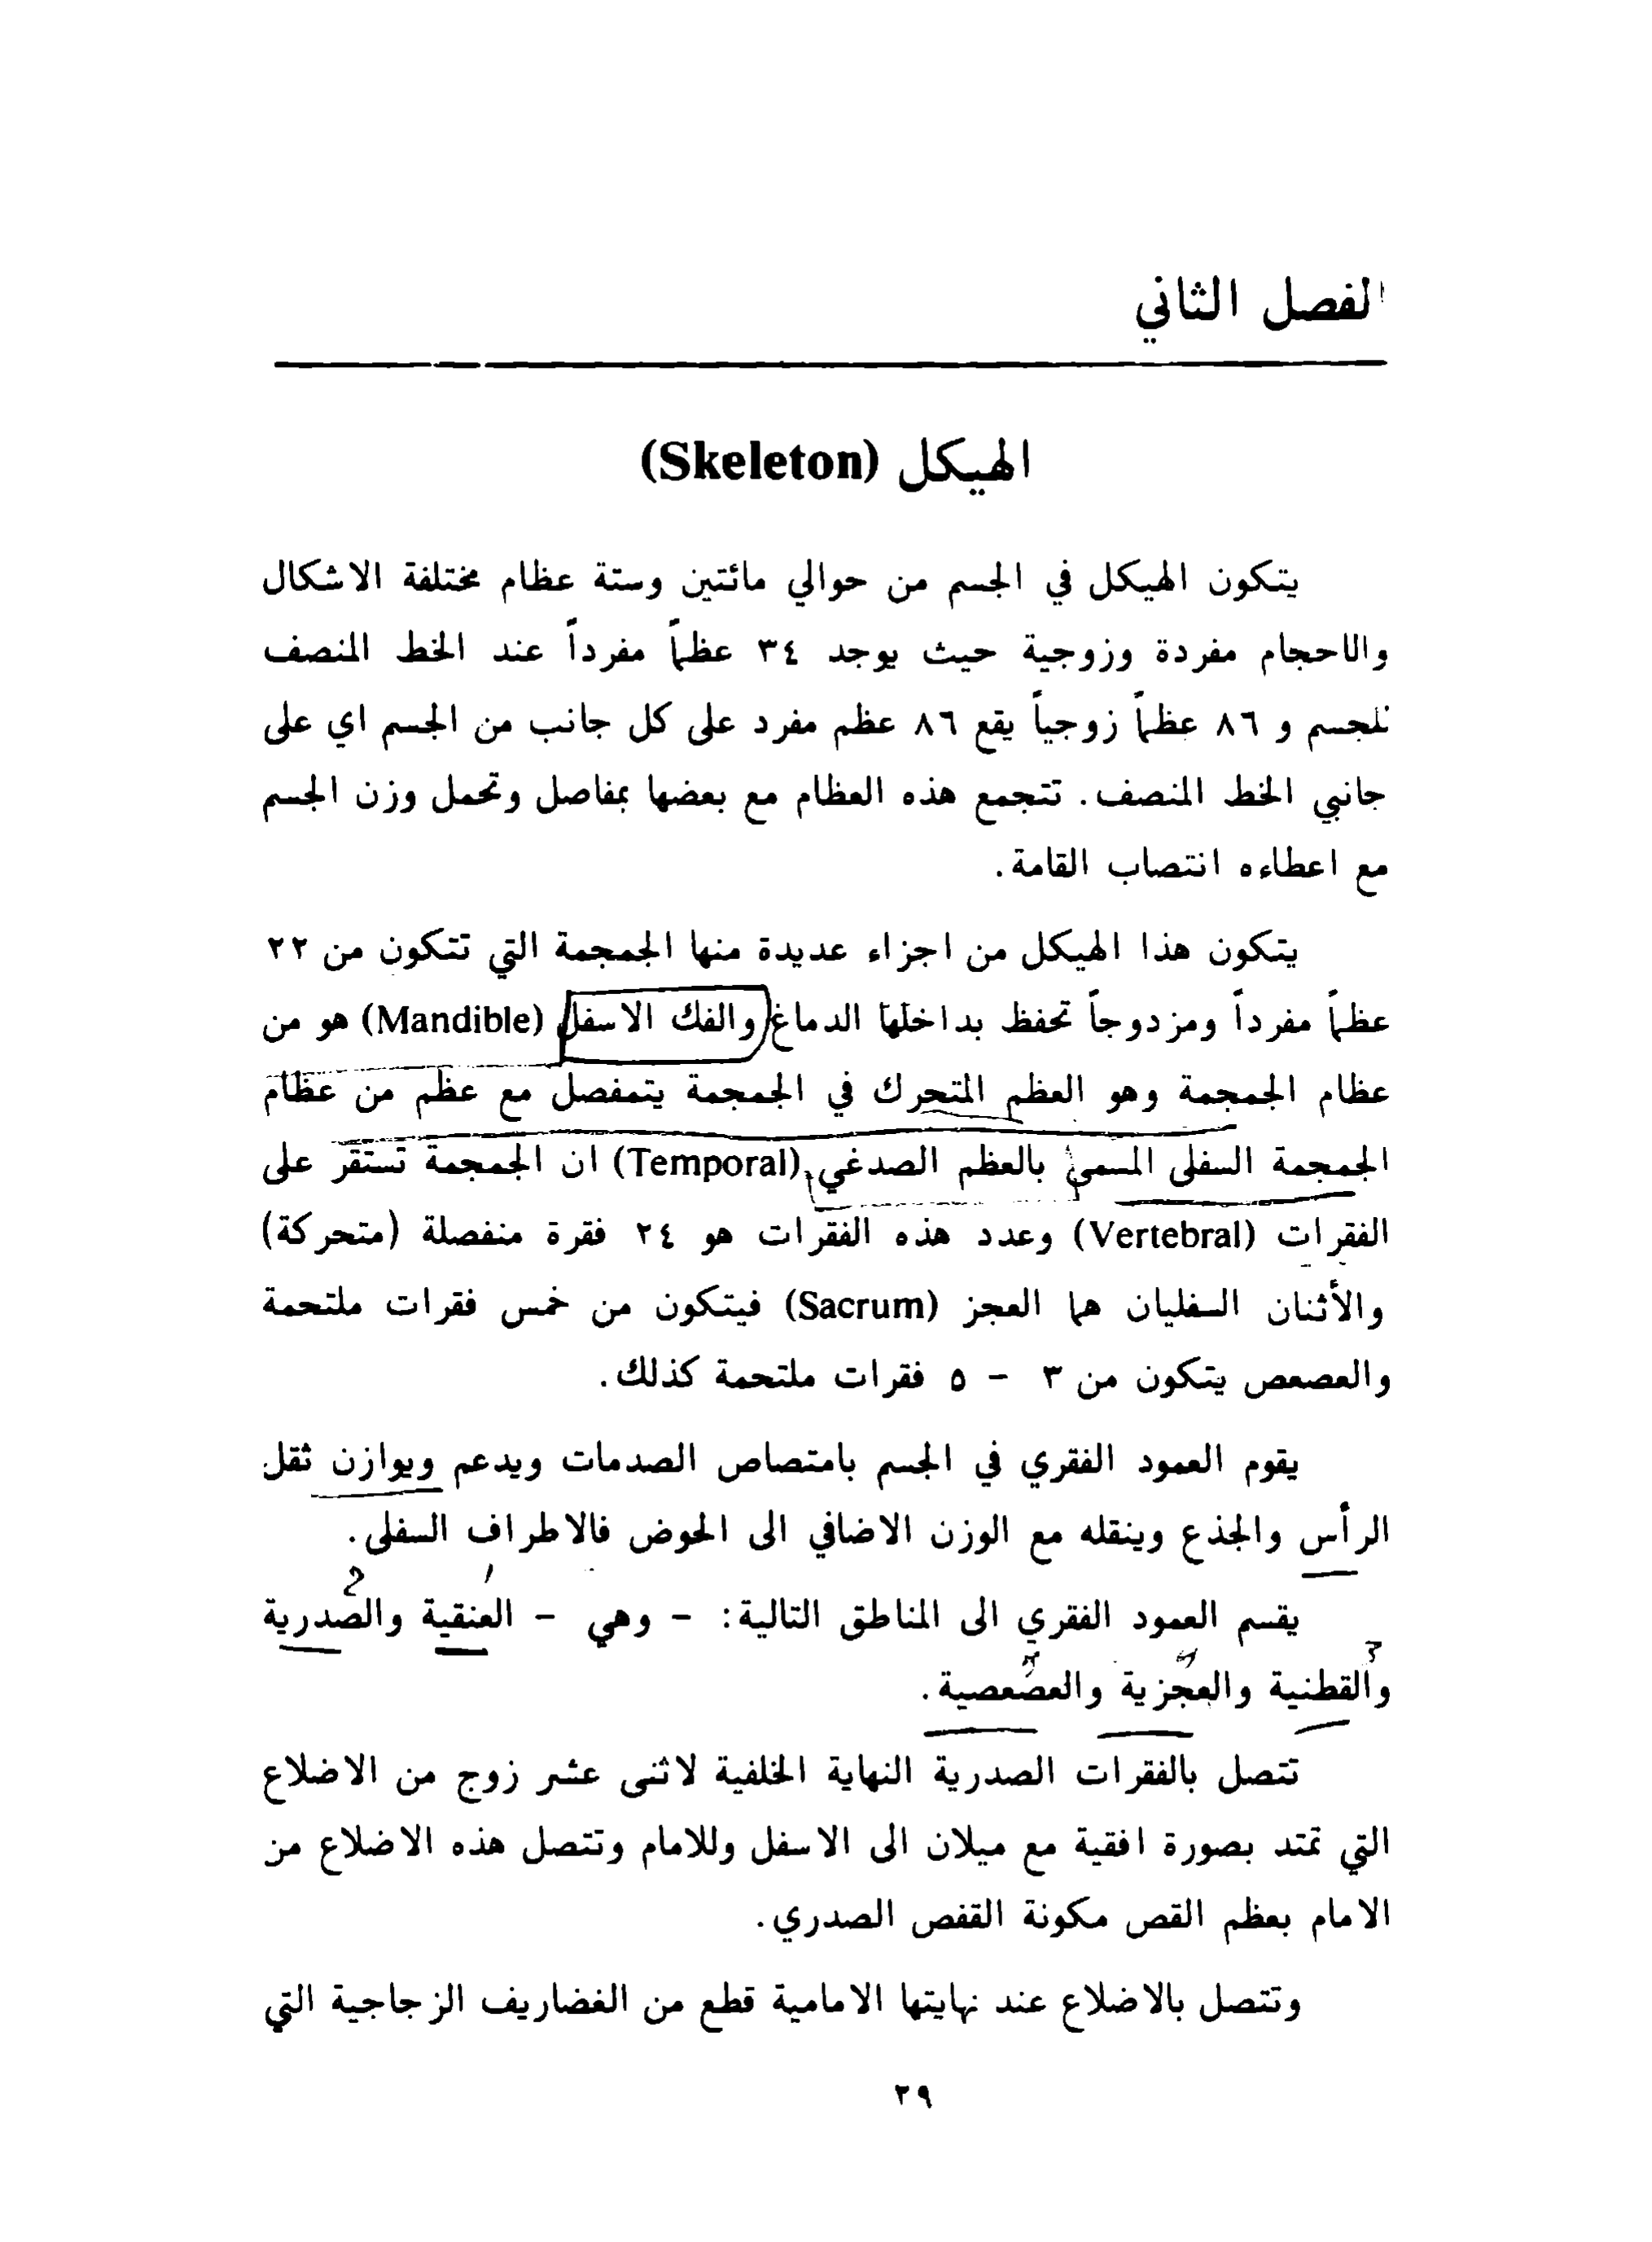 الفصل الثاني
الهيكل (Skeleton)
يتكون الهيكل في الجسم من حوالي مائتين وستة عظام مختلفة الاشكال
والاحجام مفردة وزوجية حيث يوجد ٣٤ عظماً مفرداً عند الخط المنصف
للجسم و ٨٦ عظماً زوجياً يقع ٨٦ عظم مفرد على كل جانب من الجسم اي على
جانبي الخط المنصف. تتجمع هذه العظام مع بعضها بمفاصل وتحمل وزن الجسم
مع اعطاءه انتصاب القامة.
يتكون هذا الهيكل من اجزاء عديدة منها الجمجمة التي تتكون من ٢٢
عظماً مفرداً ومزدوجاً تحفظ بداخلها الدماغ والفك الاسفل (Mandible) هو من
عظام الجمجمة وهو العظم المتحرك في الجمجمة يتمفصل مع عظم من عظام
الجمجمة السفلى المسمى بالعظم الصدغي (Temporal) ان الجمجمة تستقر على
الفقرات (Vertebral) وعدد هذه الفقرات هو ٢٤ فقرة منفصلة (متحركة)
والأثنان السفليان هما العجز (Sacrum) فيتكون من خمس فقرات ملتحمة
والعصعص يتكون من ٣ - ٥ فقرات ملتحمة كذلك.
يقوم العمود الفقري في الجسم بامتصاص الصدمات ويدعم ويوازن ثقل
الرأس والجذع وينقله مع الوزن الاضافي الى الحوض فالاطراف السفلى.
يقسم العمود الفقري الى المناطق التالية: - وهي - العنقية والصدرية
والقطنية والعجزية والعصعصية.
تتصل بالفقرات الصدرية النهاية الخلفية لاثنى عشر زوج من الاضلاع
التي تمتد بصورة افقية مع ميلان الى الاسفل وللامام وتتصل هذه الاضلاع من
الامام بعظم القص مكونة القفص الصدري.
وتتصل بالاضلاع عند نهايتها الامامية قطع من الغضاريف الزجاجية التي
٢٩